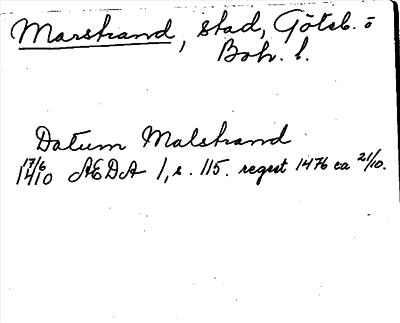 Marstrand, stad, Göteb. o
Boh. l.
Datum Malstrand
17/6 1410 AEDA 1, s. 115. regest 1476 ca 21/10.